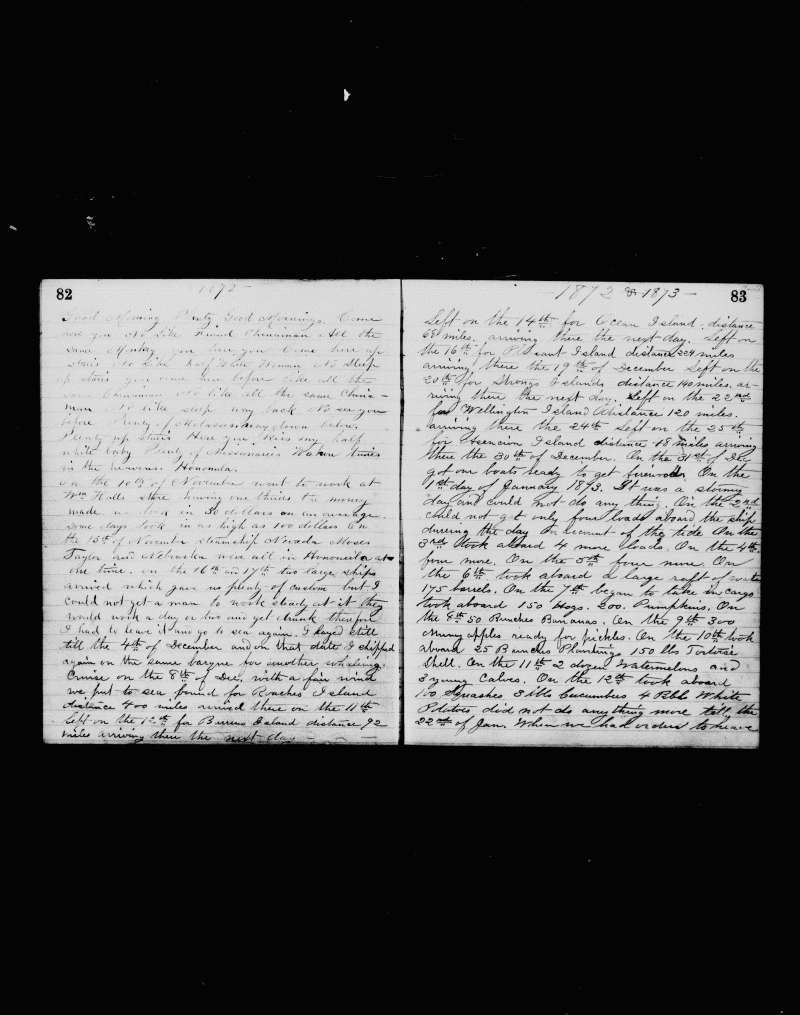 82
1872
Good Morning Plenty Good Mornings. Come
see you No Like Friend Chinaman All the
same Monkey you here you Come here up
stairs No Like Half White Woman No Sleep
up stairs you come here before like all the
same Chinaman No like all the same China-
man No like sleep way back No see you
before Plenty of Molasses way down below.
Plenty up stairs Here you Kiss my half
white baby Plenty of Missionaries Waken times
in the heavens. Honolula.
on the 10th of November went to work at
Wm Halls Store having one thirds the money
made. we took in 30 dollars on an average
some days took in as high as 100 dollars On
the 15th of November Steamship Nevada Moses
Taylor and Nebraska were all in Honolula at
one time. on the 16th and 17th two large ships
arrived which gave us plenty of custom but I
could not get a man to work steady at it they
would work a day or two and get drunk therefore
I had to leave it and go to sea again. I stayed still
till the 4th of December and on that date I shipped
again on the same barque for another whaling
Cruise on the 8th of Dec. with a fair wind
we put to sea bound for Roaches Island
distance 400 miles arrived there on the 11th
Left on the 12th for Burens Island distance 92
miles arriving there the next day
83
1872 & 1873
Left on the 14th for Ocean Island distance
68 miles. arriving there the next day. Left on
the 16th for Pleasant Island distance 224 miles
arriving there the 19th of December Left on the
20th for Strongs Islands distance 140 miles, ar-
riving there the next day. Left on the 22nd
for Wellington Island distance 120 miles.
arriving there the 24th Left on the 25th
for Asencion Island distance 18 miles arriving
there the 30th of December. On the 31st of Dec
got our boats ready to get firewood. On the
1st day of January 1873. It was a stormy
day and could not do any thing. On the 2nd
could not get only four loads aboard the ship
during the day on account of the tide On the
3rd took aboard 4 more loads. On the 4th
four more. On the 5th four more. On
the 6th took aboard a large raft of water
175 barels. On the 7th began to take in cargo
took aboard 150 Hogs. 200. Pumpkins. On
the 8th 50 Bunches Bananas. On the 9th 300
apples ready for pickles. On the 10th took
aboard 25 Bunches Planting 150 lbs Tortoise
Shell. On the 11th 2 dozen Watermelons and
3 young Calves. On the 12th took aboard
100 Squashes 3 bbls Cucumbers 4 Rbl White
Potatoes did not do anything more till the
22nd of Jan. When we had orders to heave